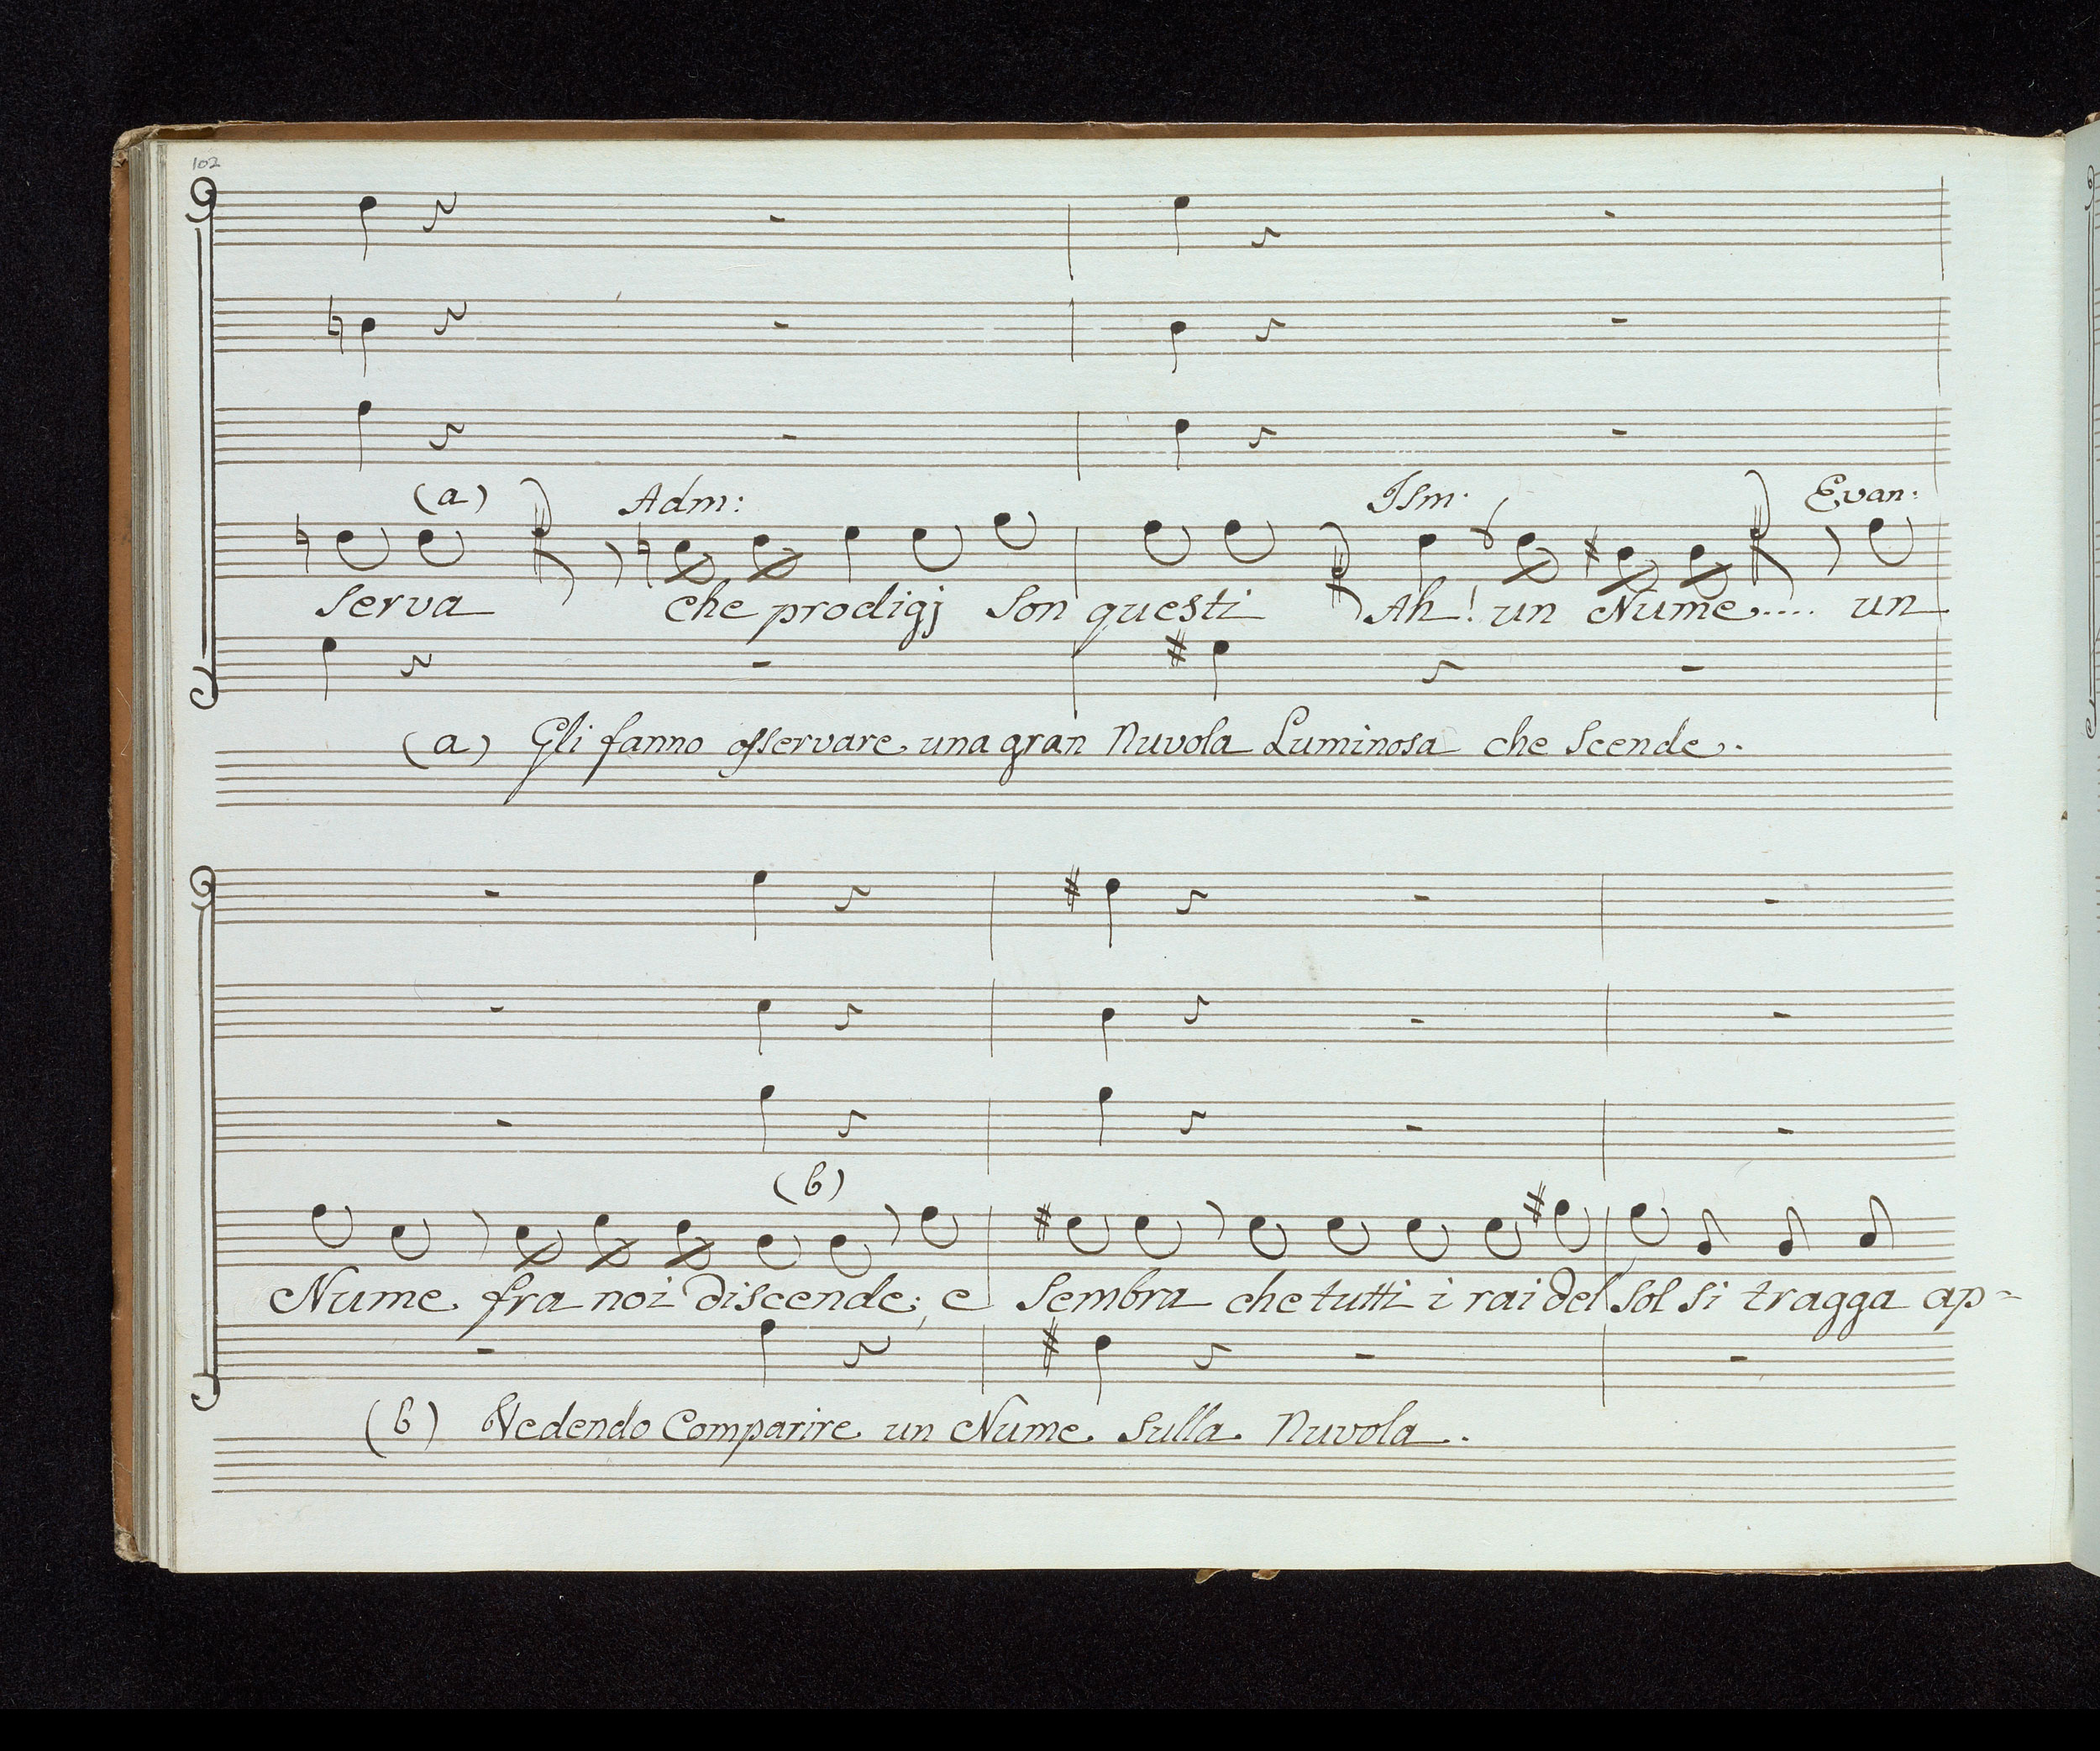 102
(a) Adm: Ism: Evan:
serva che prodigj son questi Ah! un Nume..... un
(a) Gli fanno osservare una gran Nuvola Luminosa che scende.
(b)
Nume fra noi discende; e sembra che tutti i rai del sol si tragga ap=
(b) Vedendo Comparire un Nume sulla Nuvola.